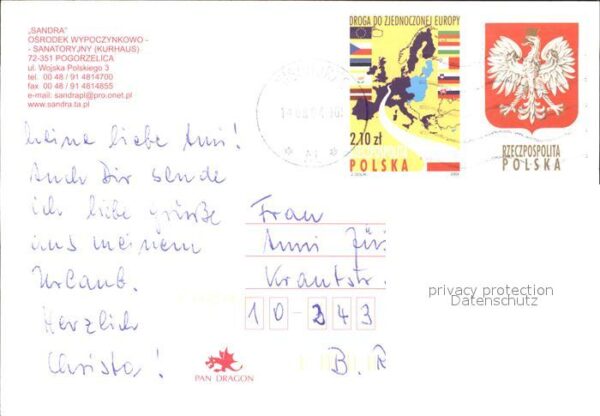 "SANDRA"
OŚRODEK WYPOCZYNKOWO -
- SANATORYJNY (KURHAUS)
72-351 POGORZELICA
ul. Wojska Polskiego 3
tel. 00 48 / 91 4814700
fax 00 48 / 91 4814855
e-mail: sandrapl@pro.onet.pl
www.sandra.ta.pl
DROGA DO ZJEDNOCZONEJ EUROPY
2,10 zł
POLSKA
RZECZPOSPOLITA
POLSKA
Meine liebe Anni!
Auch Dir sende
ich liebe Grüße
aus meinem
Urlaub.
Herzlich
Christa!
Frau
Anni
Krautstr.
10-243
B.
privacy protection
Datenschutz
PAN DRAGON